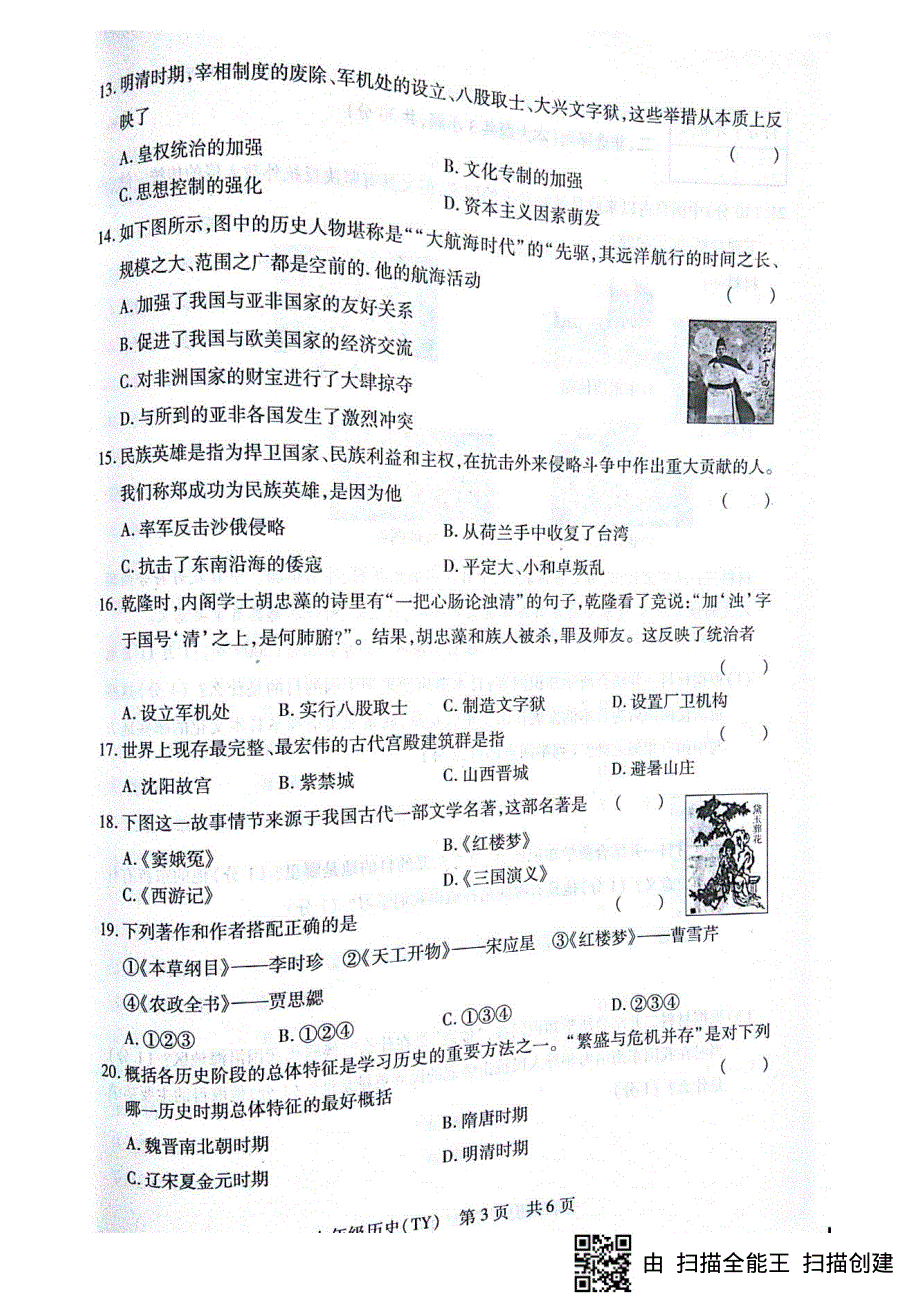 13.明清时期,宰相制度的废除、军机处的设立、八股取士、大兴文字狱,这些举措从本质上反
映了 (　　)
A.皇权统治的加强 B.文化专制的加强
C.思想控制的强化 D.资本主义因素萌发
14.如下图所示,图中的历史人物堪称是““大航海时代”的“先驱,其远洋航行的时间之长、
规模之大、范围之广都是空前的.他的航海活动 (　　)
A.加强了我国与亚非国家的友好关系
B.促进了我国与欧美国家的经济交流
C.对非洲国家的财宝进行了大肆掠夺
D.与所到的亚非各国发生了激烈冲突
15.民族英雄是指为捍卫国家、民族利益和主权,在抗击外来侵略斗争中作出重大贡献的人。
我们称郑成功为民族英雄,是因为他 (　　)
A.率军反击沙俄侵略 B.从荷兰手中收复了台湾
C.抗击了东南沿海的倭寇 D.平定大、小和卓叛乱
16.乾隆时,内阁学士胡忠藻的诗里有“一把心肠论浊清”的句子,乾隆看了竞说:“加‘浊’字
于国号‘清’之上,是何肺腑?”。结果,胡忠藻和族人被杀,罪及师友。这反映了统治者
(　　)
A.设立军机处 B.实行八股取士 C.制造文字狱 D.设置厂卫机构
17.世界上现存最完整、最宏伟的古代宫殿建筑群是指 (　　)
A.沈阳故宫 B.紫禁城 C.山西晋城 D.避暑山庄
18.下图这一故事情节来源于我国古代一部文学名著,这部名著是 (　　)
黛玉葬花
A.《窦娥冤》 B.《红楼梦》
C.《西游记》 D.《三国演义》
19.下列著作和作者搭配正确的是 (　　)
①《本草纲目》——李时珍 ②《天工开物》——宋应星 ③《红楼梦》——曹雪芹
④《农政全书》——贾思勰
A.①②③ B.①②④ C.①③④ D.②③④
20.概括各历史阶段的总体特征是学习历史的重要方法之一。“繁盛与危机并存”是对下列
哪一历史时期总体特征的最好概括 (　　)
A.魏晋南北朝时期 B.隋唐时期
C.辽宋夏金元时期 D.明清时期
年级历史(TY) 第3页 共6页
由 扫描全能王 扫描创建